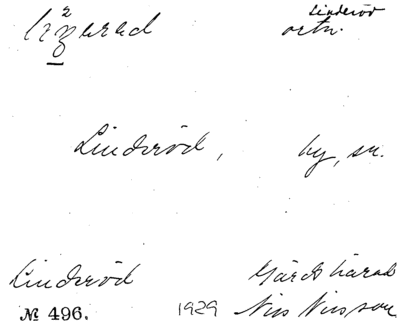 Linderöd
ortn.
Linderöd, by, sn.
Linderöd Gärds härad
№ 496. 1929 Nils Nilsson